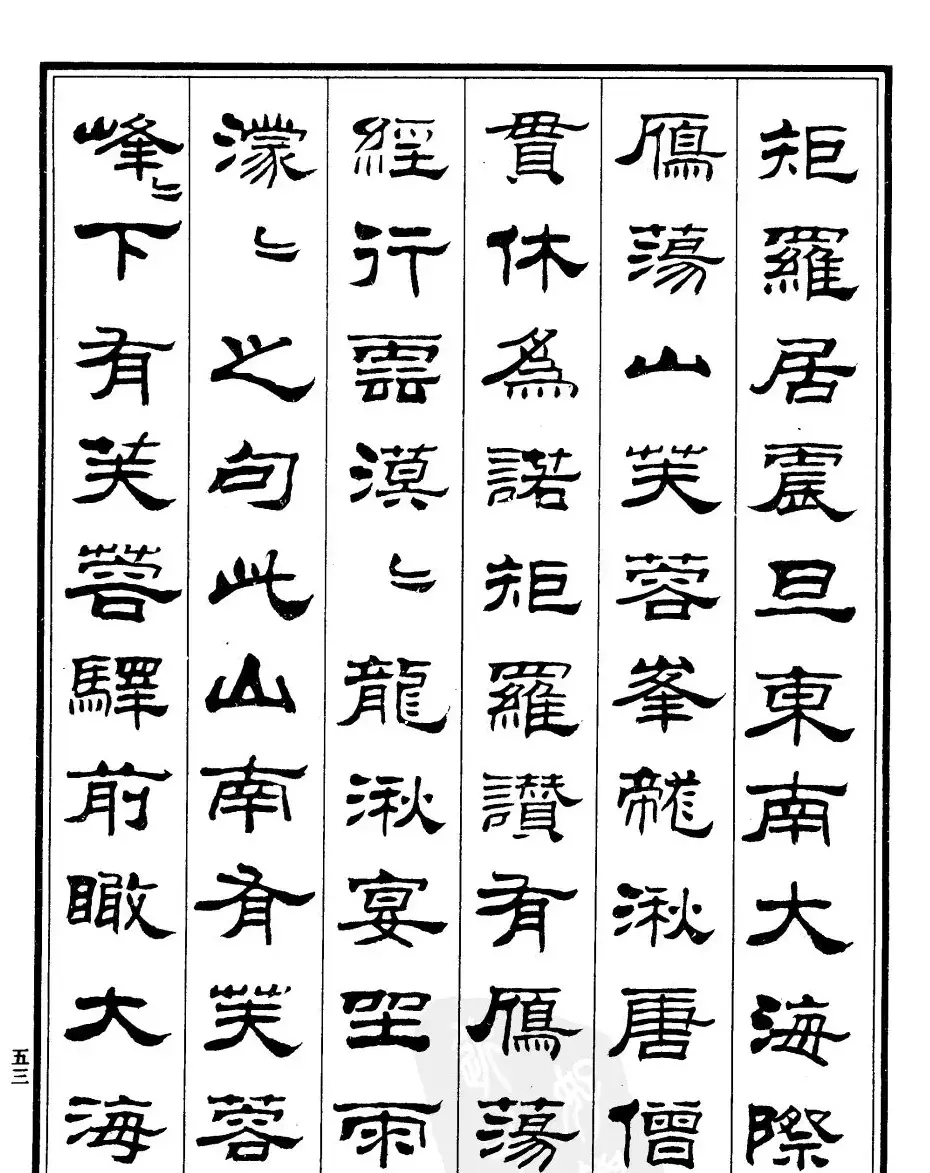 矩羅居震旦東南大海際
鴈蕩山芙蓉峯龍湫唐僧
貫休為諾矩羅讃有鴈蕩
經行雲漠〻龍湫宴坐雨
濛〻之句此山南有芙蓉
峰〻下有芙蓉驛前瞰大海
五三